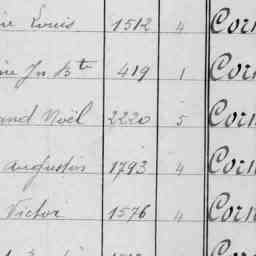 Louis 1512 4 Corn
Jn Bte 419 1 Corn
and Noël 2220 5 Corn
Augustin 1793 4 Corn
Victor 1576 4 Corn